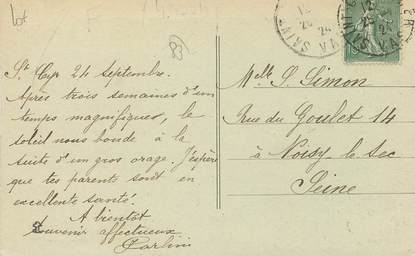 Lot
St Cyr 24 Septembre.
Après trois semaines d'un
temps magnifiques, le
soleil nous boude à la
suite d'un gros orage. J'espère
que tes parents sont en
excellente santé.
A bientôt
Souvenir affectueux
Melle S. Simon
Rue du Goulet 14
à Noisy le Sec
Seine